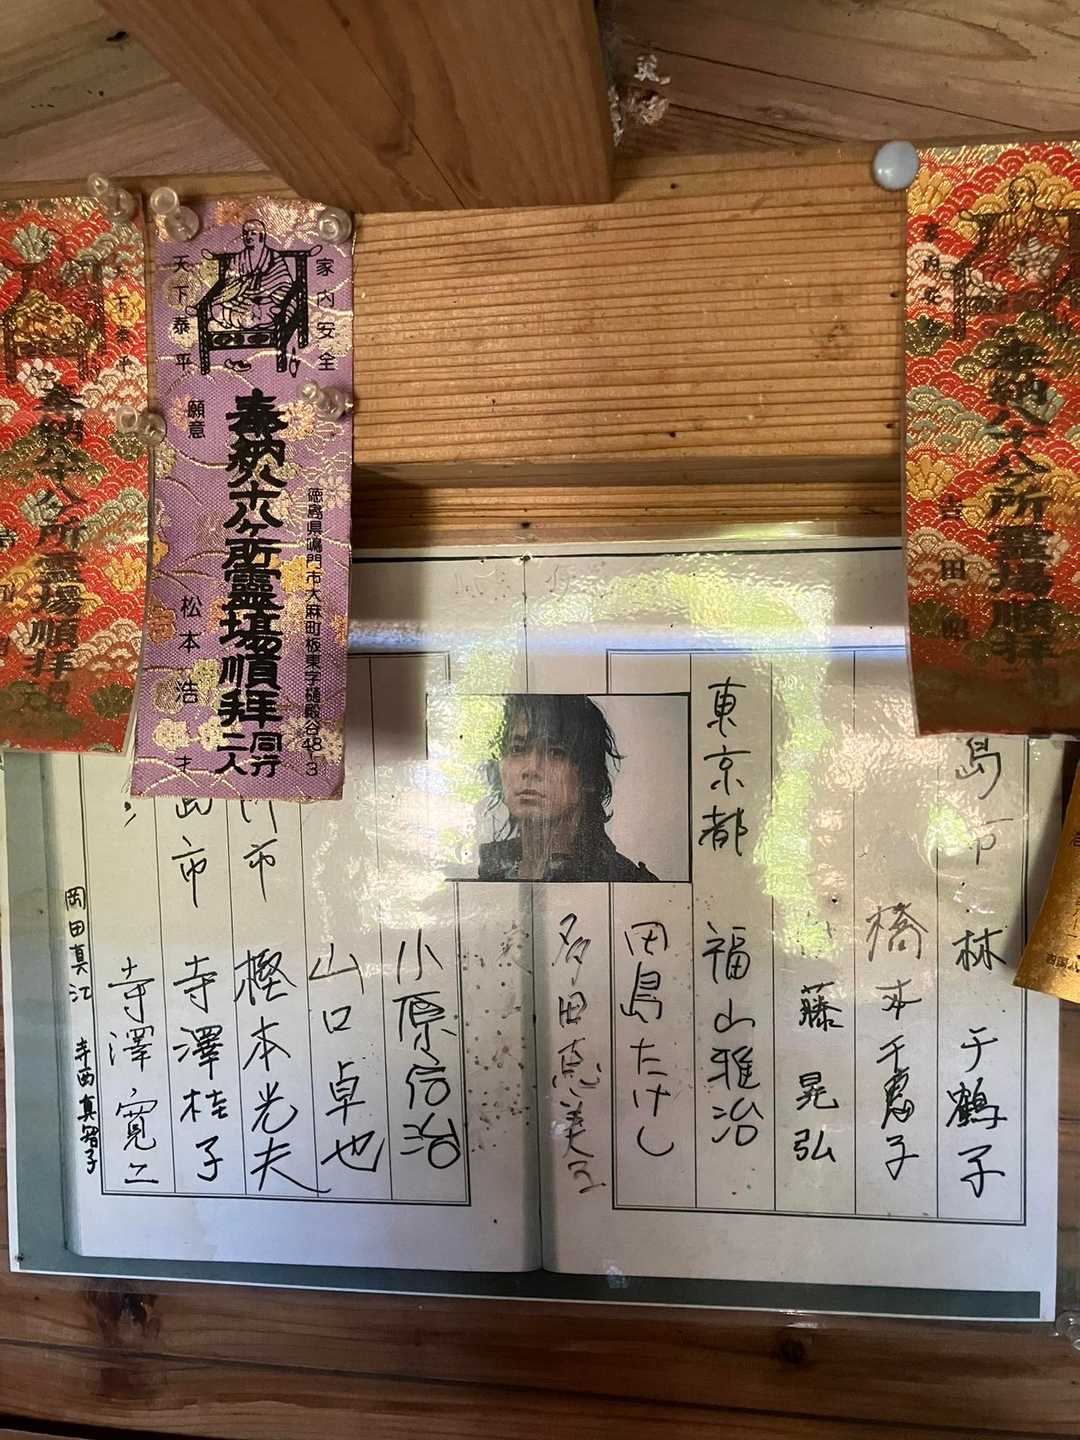 家内安全
奉納八十八ヶ所霊場順拝
同行
二人
天下泰平
願意
徳島県鳴門市大麻町板東字樋殿谷48-3
松本浩才
奉納八十八ヶ所霊場順拝
吉田昭
奉納八十八ヶ所霊場順拝
島市 林 千鶴子
橋本千恵子
藤 晃弘
東京都 福山雅治
田島たけし
多田恵美子
小原信治
山口卓也
市 樫本光夫
島市 寺澤桂子
寺澤寛二
岡田真江 寺西真智子